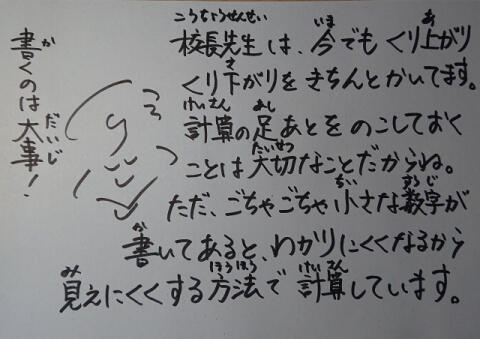 校長先生は、今でもくり上がり
くり下がりをきちんとかいてます。
計算の足あとをのこしておく
ことは大切なことだからね。
ただ、ごちゃごちゃ小さな数字が
書いてあると、わかりにくくなるから
見えにくくする方法で計算しています。
書くのは大事!